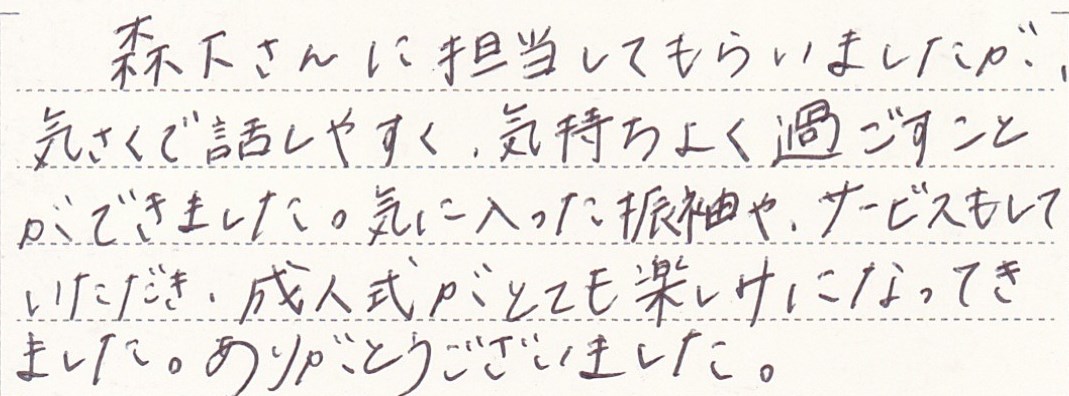 森下さんに担当してもらいましたが、
気さくで話しやすく、気持ちよく過ごすこと
ができました。気に入った振袖や、サービスもして
いただき、成人式がとても楽しみになってき
ました。ありがとうございました。